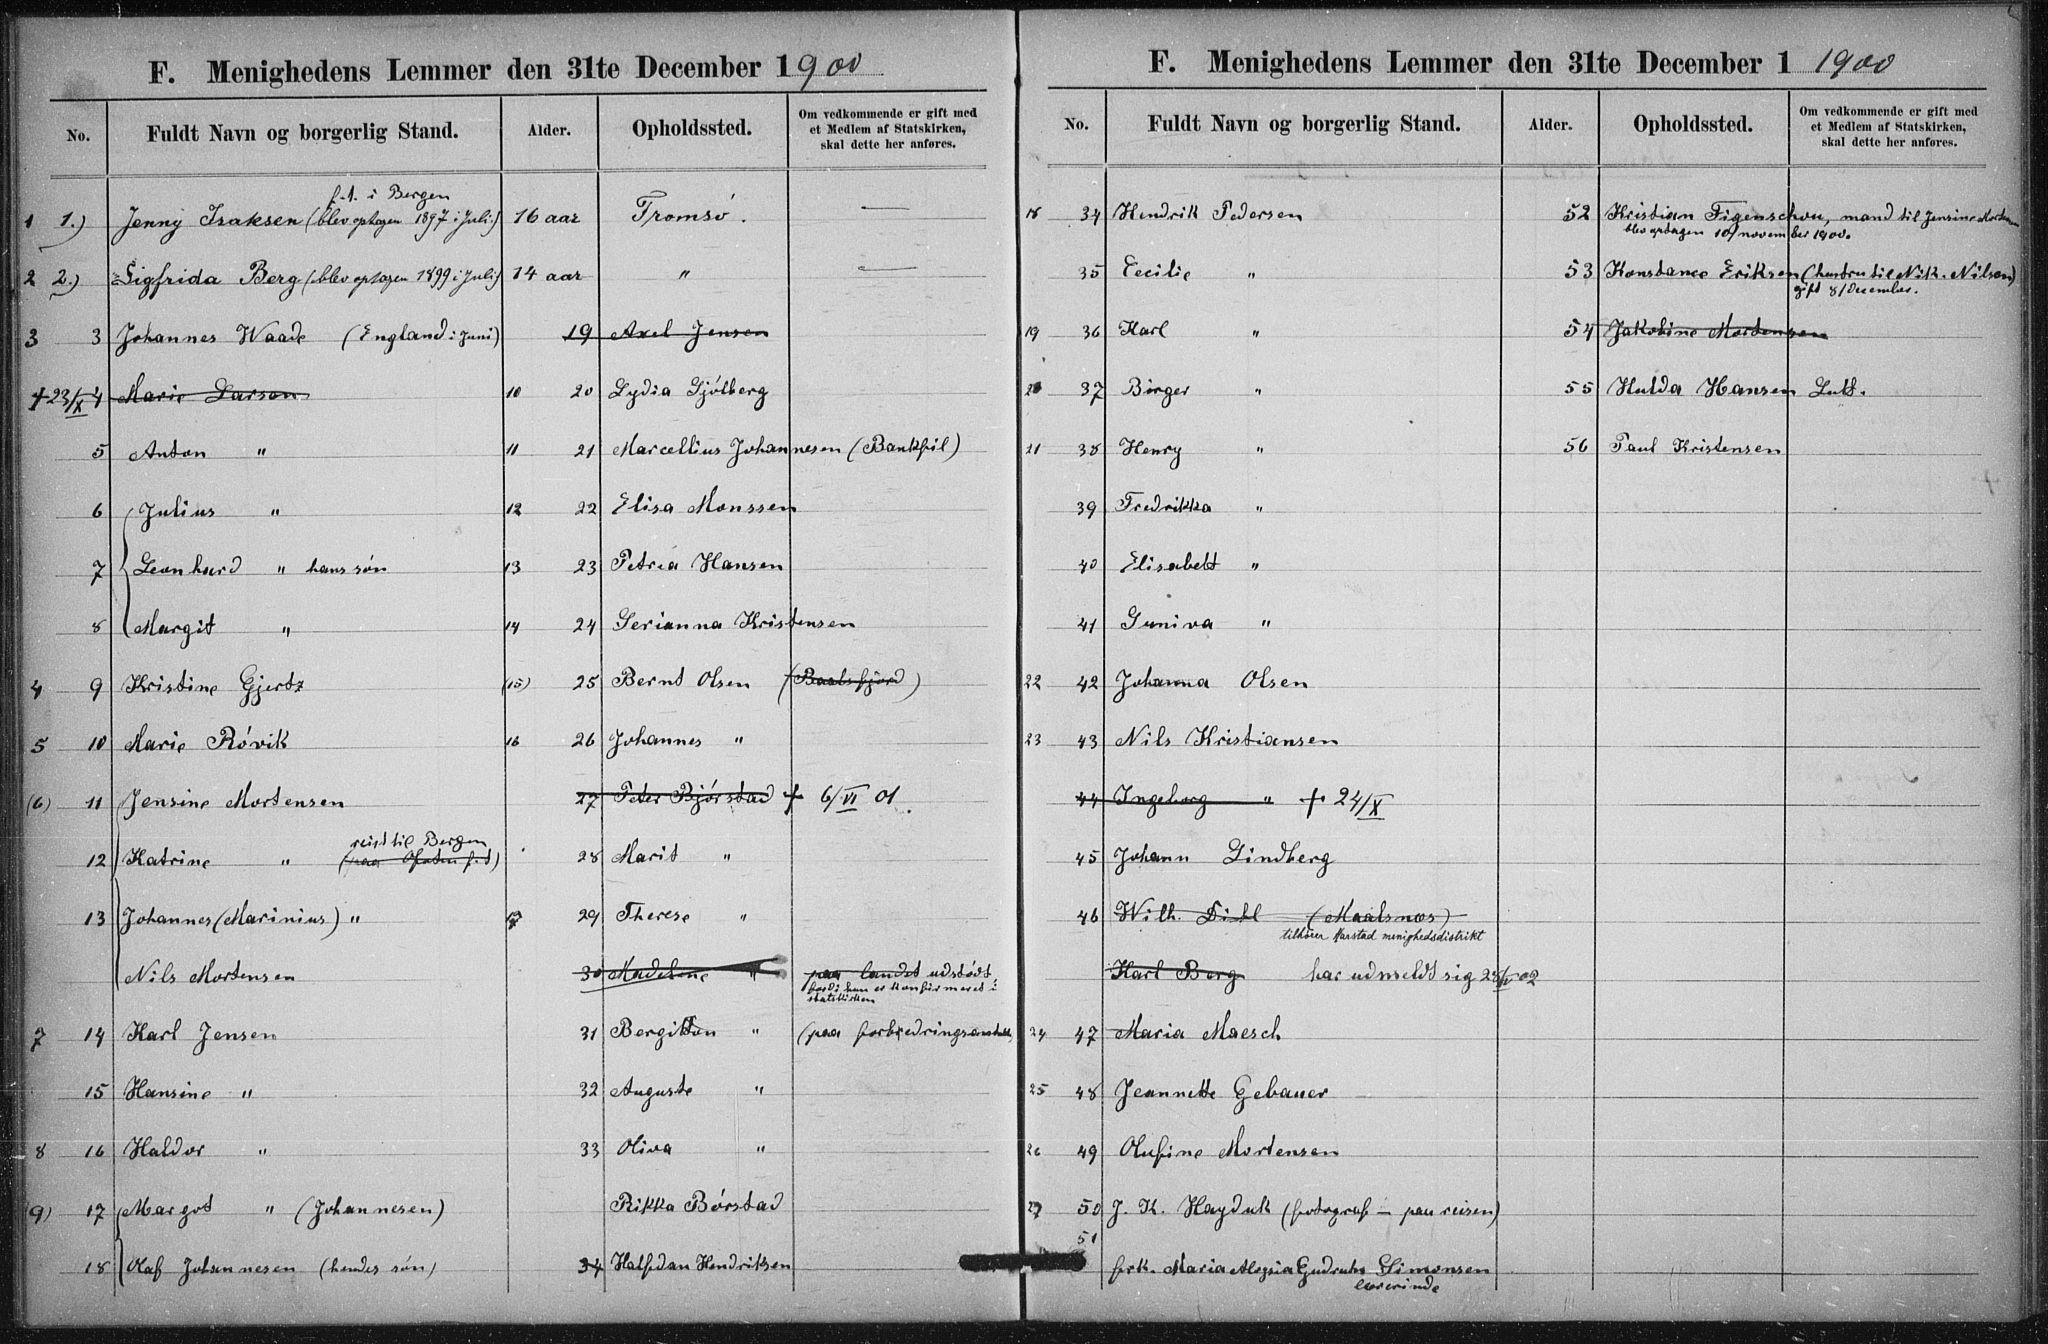 F. Menighedens Lemmer den 31te December 1900
No.
Fuldt Navn og borgerlig Stand.
Alder.
Opholdssted.
Om vedkommende er gift med
et Medlem af Statskirken,
skal dette her anføres.
p.t. i Bergen
1 1.) Jenny Isaksen (blev optagen 1897 i Juli) 16 aar Tromsø. —
2 2.) Sigfrida Berg (blev optagen 1899 i Juli) 14 aar " —
3 3 Johannes Waade (England i Juni)
+23/X 4 Marie Larsen
5 Anton "
6 Julius "
7 Leonhard " hans søn
8 Margit "
4 9 Kristine Gjertz
5 10 Marie Róvik
(6) 11 Jensine Mortensen
reist til Bergen
12 Katrine " (paa Ofoten p.t)
13 Johannes (Marinius) "
Nils Mortensen
7 14 Karl Jensen
15 Hansine "
8 16 Haldor "
(9) 17 Margot " (Johannesen)
18 Kaf Johannesen (hendes søn)
19 Axel Jensen
10 20 Lydia Gjølberg
11 21 Marcellius Johannesen (Bankfil)
12 22 Elisa Monssen
13 23 Petrea Hansen
14 24 Gerianna Kristensen
(15) 25 Bernt Olsen (Baalsfjord)
16 26 Johannes "
27 Peter Bjørstad + 6/VI 01.
28 Marit "
17 29 Therese "
30 Madelene " paa landet udstødt
fordi hun er konfirmeret i
statskirken
31 Bergitton " (paa forbedringsanstalt)
32 Auguste "
33 Oliva "
Rikka Børstad
34 Halfdan Hendriksen
F. Menighedens Lemmer den 31te December 1 1900
No.
Fuldt Navn og borgerlig Stand.
Alder.
Opholdssted.
Om vedkommende er gift med
et Medlem af Statskirken,
skal dette her anføres.
18 34 Hendrik Pedersen
35 Cecilie "
19 36 Karl "
20 37 Birger "
21 38 Henry "
39 Fredrikka "
40 Elisabett "
41 Guniva "
22 42 Johanna Olsen
23 43 Nils Kristiansen
44 Ingeborg " + 24/X
45 Johann Lindberg
46 Wilh. Dihl (Maalsnes)
tilhører Harstad menighedsdistrikt
Karl Berg har udmeldt sig 28/IV 02
24 47 Maria Maesch
25 48 Jeannette Gebauer
26 49 Olufine Mortensen
27 50 J. K. Hayduk (fotograf – paa reisen)
51
frk. Maria Aloysia Gudrun Simonsen
lærerinde
52 Kristian Figenschou, mand til Jensine Mortensen
blev optagen 10/november 1900.
53 Konstance Eriksen (hustru til Nik. Nilsen)
gift 8/december.
54 Jakobine Mortensen
55 Hulda Hansen Luth.
56 Paul Kristensen